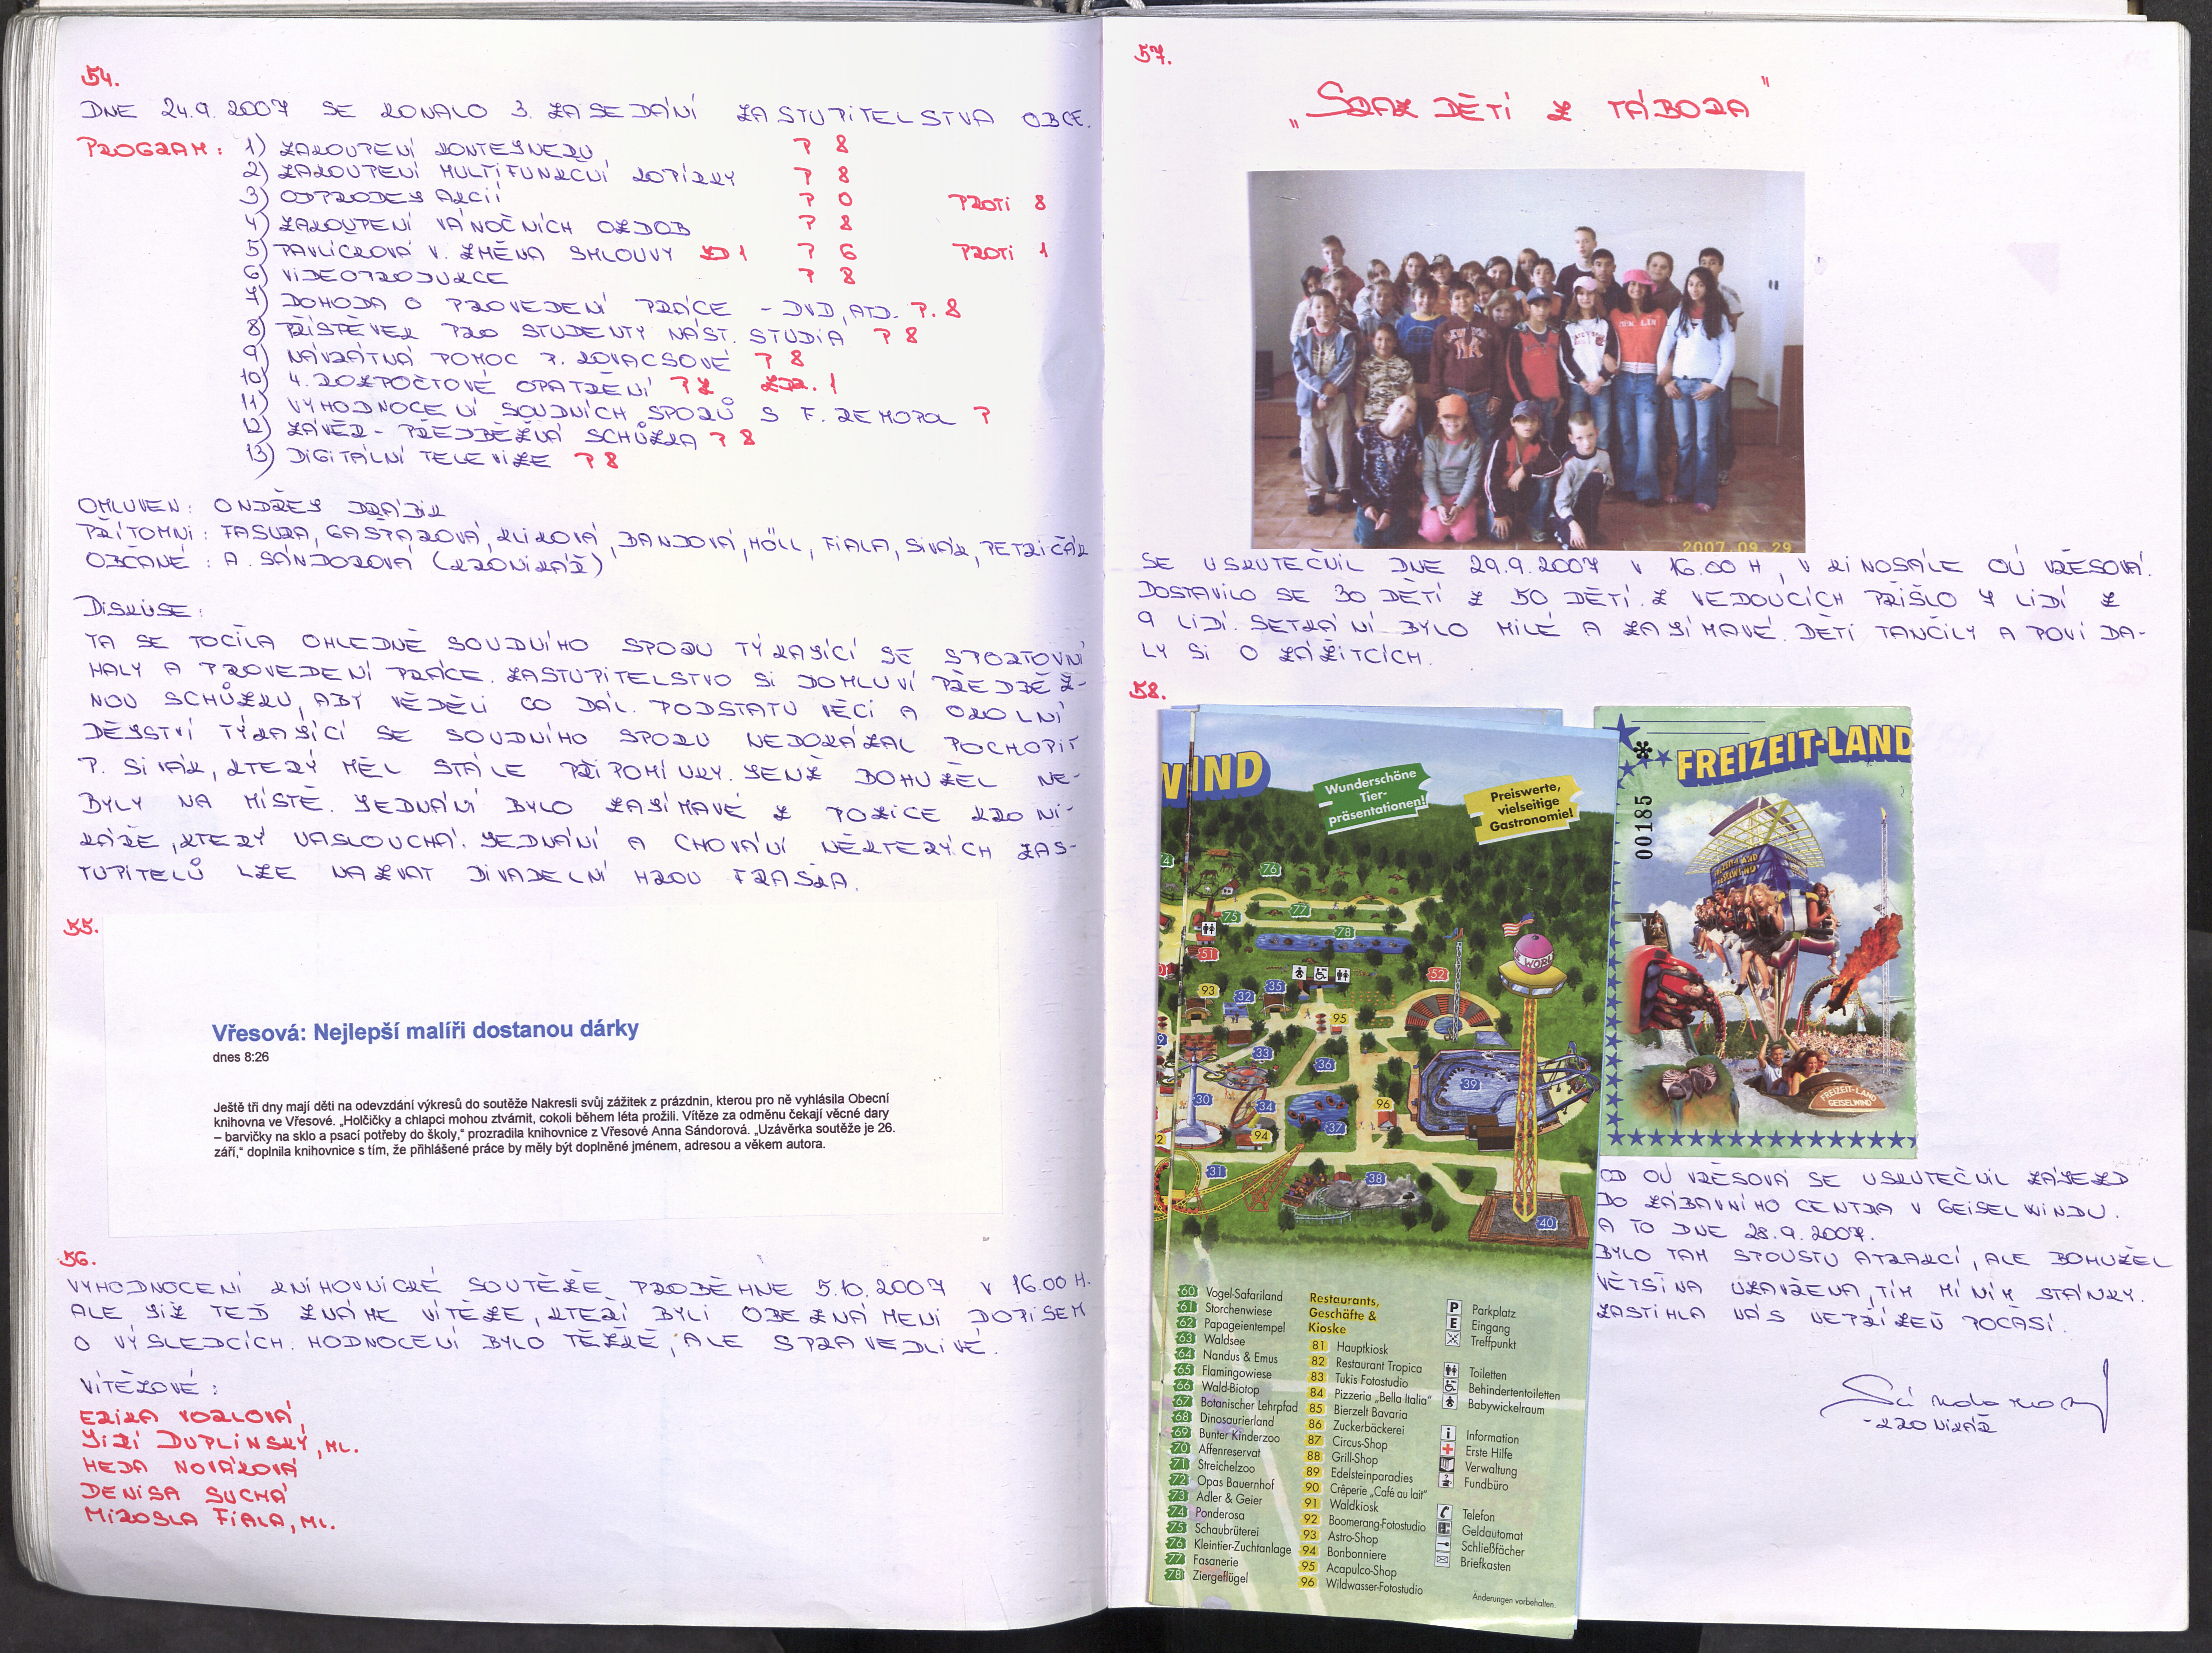 54.
DNE 24.9.2007 SE KONALO 3. ZASEDÁNÍ ZASTUPITELSTVA OBCE.
PROGRAM: 1) ZAKOUPENÍ KONTEJNERU P 8
2) ZAKOUPENÍ MULTIFUNKCNÍ KOPÍRKY P 8
3) ODPRODEJ AKCIÍ P 0 PROTI 8
4) ZAKOUPENÍ VÁNOČNÍCH OZDOB P 8
5) PAVLÍCKOVÁ V. ZMĚNA SMLOUVY ZD 1 P 6 PROTI 1
6) VIDEOPRODUKCE P 8
7) DOHODA O PROVEDENÍ PRÁCE - DVD, ATD. P. 8
8) PŘÍSPĚVEK PRO STUDENTY NÁST. STUDIA P 8
9) NÁVRATNÁ POMOC P. KOVACSOVÉ P 8
10) 4. ROZPOČTOVÉ OPATŘENÍ P 7 ZDR. 1
11) VYHODNOCENÍ SOUDNÍCH SPORŮ S F. REMOPA P
12) ZÁVĚR - PŘEDBĚŽNÁ SCHŮZKA P 8
13) DIGITÁLNÍ TELEVIZE P 8
OMLUVEN: ONDŘEJ DRÁBIK
PŘÍTOMNI: FASURA, GAŠPAROVÁ, KLIKOVÁ, DANDOVÁ, HÖLL, FIALA, SIVÁK, PETRIČÁK
OBČANÉ: A. SÁNDOROVÁ (KRONIKÁŘ)
DISKUSE:
TA SE TOCILA OHLEDNĚ SOUDNÍHO SPORU TÝKAJÍCÍ SE SPORTOVNÍ
HALY A PROVEDENÍ PRÁCE. ZASTUPITELSTVO SI DOMLUVÍ PŘEDBĚŽ-
NOU SCHŮZKU, ABY VĚDĚLI CO DÁL. PODSTATU VĚCÍ A OKOLNÍ
DĚJSTVÍ TÝKAJÍCÍ SE SOUDNÍHO SPORU NEDOKÁZAL POCHOPIT
P. SIVÁK, KTERÝ MĚL STÁLE PŘIPOMÍNKY. JENŽ BOHUŽEL NE-
BYLY NA MÍSTĚ. JEDNÁNÍ BYLO ZAJÍMAVÉ Z POZICE KRONI-
KÁŘE, KTERÝ NASLOUCHÁ. JEDNÁNÍ A CHOVÁNÍ NĚKTERÝCH ZAS-
TUPITELŮ LZE NAZVAT DIVADELNÍ HROU FRAŠKA.
55.
Vřesová: Nejlepší malíři dostanou dárky
dnes 8:26
Ještě tři dny mají děti na odevzdání výkresů do soutěže Nakresli svůj zážitek z prázdnin, kterou pro ně vyhlásila Obecní
knihovna ve Vřesové. „Holčičky a chlapci mohou ztvárnit, cokoli během léta prožili. Vítěze za odměnu čekají věcné dary
– barvičky na sklo a psací potřeby do školy,“ prozradila knihovnice z Vřesové Anna Sándorová. „Uzávěrka soutěže je 26.
září,“ doplnila knihovnice s tím, že přihlášené práce by měly být doplněné jménem, adresou a věkem autora.
56.
VYHODNOCENÍ KNIHOVNICKÉ SOUTĚŽE PROBĚHNE 5.10.2007 V 16.00 H.
ALE JIŽ TEĎ ZNÁME VÍTĚZE, KTEŘÍ BYLI OBEZNÁMENI DOPISEM
O VÝSLEDCÍCH. HODNOCENÍ BYLO TĚŽKÉ, ALE SPRAVEDLIVÉ.
VÍTĚZOVÉ:
ERIKA VORLOVÁ,
JIŘÍ DUPLINSKÝ, ML.
HEDA NOVÁKOVÁ
DENISA SUCHÁ
MIROSLA FIALA, ML.
57.
„SRAZ DĚTÍ Z TÁBORA"
2007.09.29
SE USKUTEČNIL DNE 29.9.2007 V 16.00 H, V KINOSÁLE OÚ VŘESOVÁ.
DOSTAVILO SE 30 DĚTÍ Z 50 DĚTÍ. Z VEDOUCÍCH PŘIŠLO 7 LIDÍ Z
9 LIDÍ. SETKÁNÍ BYLO MILÉ A ZAJÍMAVÉ. DĚTI TANČILY A POVÍDA-
LY SI O ZÁŽITCÍCH.
58.
WIND
Wunderschöne
Tier-
präsentationen!
Preiswerte,
vielseitige
Gastronomie!
76
75
77
78
51
52
93
32
35
95
33
36
39
30
34
96
37
94
31
38
40
60 Vogel-Safariland
61 Storchenwiese
62 Papageientempel
63 Waldsee
64 Nandus & Emus
65 Flamingowiese
66 Wald-Biotop
67 Botanischer Lehrpfad
68 Dinosaurierland
69 Bunter Kinderzoo
70 Affenreservat
71 Streichelzoo
72 Opas Bauernhof
73 Adler & Geier
74 Ponderosa
75 Schaubrüterei
76 Kleintier-Zuchtanlage
77 Fasanerie
78 Ziergeflügel
Restaurants,
Geschäfte &
Kioske
81 Hauptkiosk
82 Restaurant Tropica
83 Tukis Fotostudio
84 Pizzeria „Bella Italia“
85 Bierzelt Bavaria
86 Zuckerbäckerei
87 Circus-Shop
88 Grill-Shop
89 Edelsteinparadies
90 Crêperie „Café au lait“
91 Waldkiosk
92 Boomerang-Fotostudio
93 Astro-Shop
94 Bonbonniere
95 Acapulco-Shop
96 Wildwasser-Fotostudio
P Parkplatz
E Eingang
Treffpunkt
Toiletten
Behindertentoiletten
Babywickelraum
i Information
Erste Hilfe
Verwaltung
Fundbüro
Telefon
Geldautomat
Schließfächer
Briefkasten
Änderungen vorbehalten.
FREIZEIT-LAND
00185
FREIZEIT-LAND
GEISELWIND
OD OÚ VŘESOVÁ SE USKUTEČNIL ZÁJEZD
DO ZÁBAVNÍHO CENTRA V GEISELWINDU.
A TO DNE 28.9.2007.
BYLO TAM SPOUSTU ATRAKCÍ, ALE BOHUŽEL
VĚTŠINA UZAVŘENA, TÍM MÍNÍM STÁNKY.
ZASTIHLA NÁS NEPŘÍZEŇ POČASÍ.
Sándorová
- KRONIKÁŘ